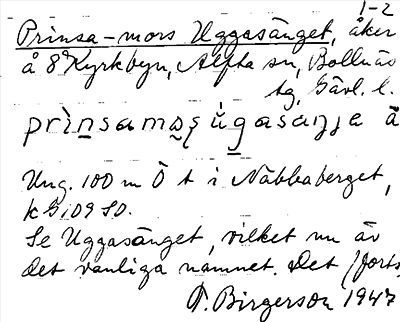 1-2
Prinsa-mors Uggasänget, åker
å 8 Kyrkbyn, Alfta sn, Bollnäs
tg, Gävl. l.
Ung. 100 m Ö t i Näbbaberget,
k G, 09 SO.
Se Uggasänget, vilket nu är
det vanliga namnet. Det (forts.
T. Birgerson 1947